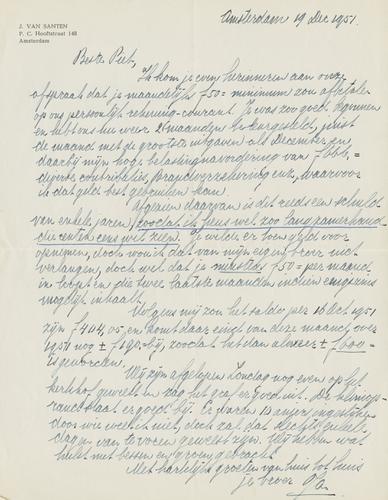 J. VAN SANTEN
P. C. Hooftstraat 148
Amsterdam
Amsterdam 19 Dec 1951.
Beste Piet,
Ik kom je even herinneren aan onze
afspraak dat je maandelijks f50= minimum zou afbetalen
op ons persoonlijk rekening-courant. Je was zoo goed
en hebt ons nu weer 2 maanden juist
de maand met de grootste uitgaven als December en
daarbij mijn hoge belastingnavordering van f666.=
diverse contributies, Brandverzekering enz. waarvoor
ik dat geld best gebruiken kan.
Afgezien daarvan is dit reeds een schuld
van enkele jaren, zoodat ik heus wel zoo langzamerhand
die centen eens wil zien. Je wilde er toen geld voor
opnemen, doch wou ik dat van mijn eigen broer niet
verlangen, doch wel dat je minstens f50= per maand
in loopt en die twee laatste maanden indien enigszins
mogelijk inhaalt.
Volgens mij zou het saldo per 16 Oct 1951
zijn f404,05, en komt daar eind van deze maand over
1951 nog ± f190.= bij, zoodat het dan alweer ± f600=
is geworden.
Wij zijn afgelopen Zondag nog even op het
kerkhof geweest en zag het graf er goed uit. De
er goed bij. Er waren 10
door we weet ik niet, doch zal dat slechts enkele
dagen van te voren geweest zijn. Wij hebben wat
hulst met bessen en groen gebracht.
Met hartelijke groeten van huis tot huis
je broer